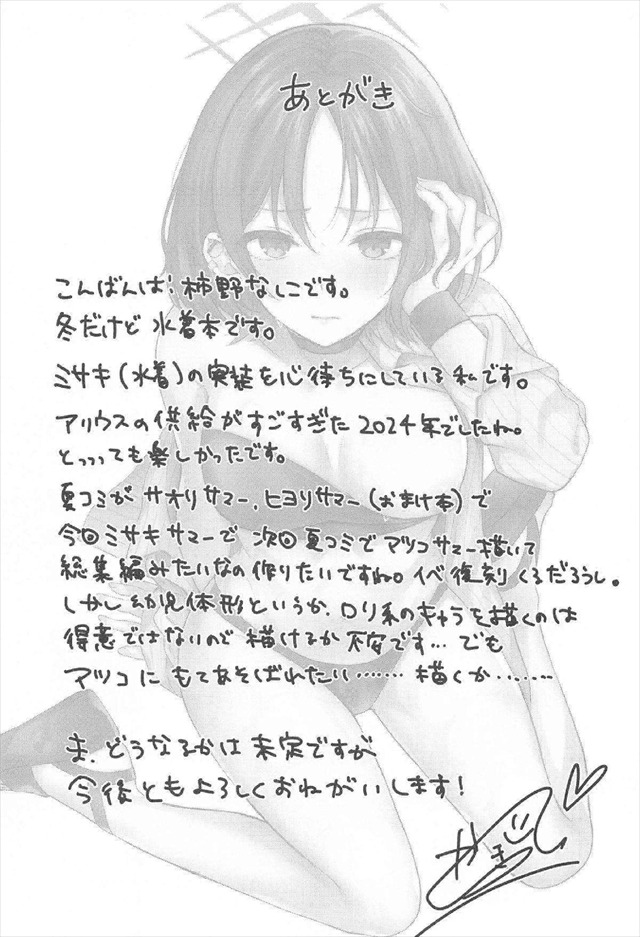 あとがき
こんばんは！柿野なしこです。
冬だけど水着本です。
ミサキ(水着)の実装を心待ちにしている私です。
アリウスの供給がすごすぎた2024年でしたね。
とっっっても楽しかったです。
夏コミがサオリサマー、ヒヨリサマー(おまけ本)で
今回ミサキサマーで次回夏コミでアツコサマー描いて
総集編みたいなの作りたいですね。イベ復刻くるだろうし。
しかし幼児体形というか、ロリ系のキャラを描くのは
得意ではないので描けるか不安です…でも
アツコにもてあそばれたい……描くか……
ま、どうなるかは未定ですが
今後ともよろしくおねがいします！